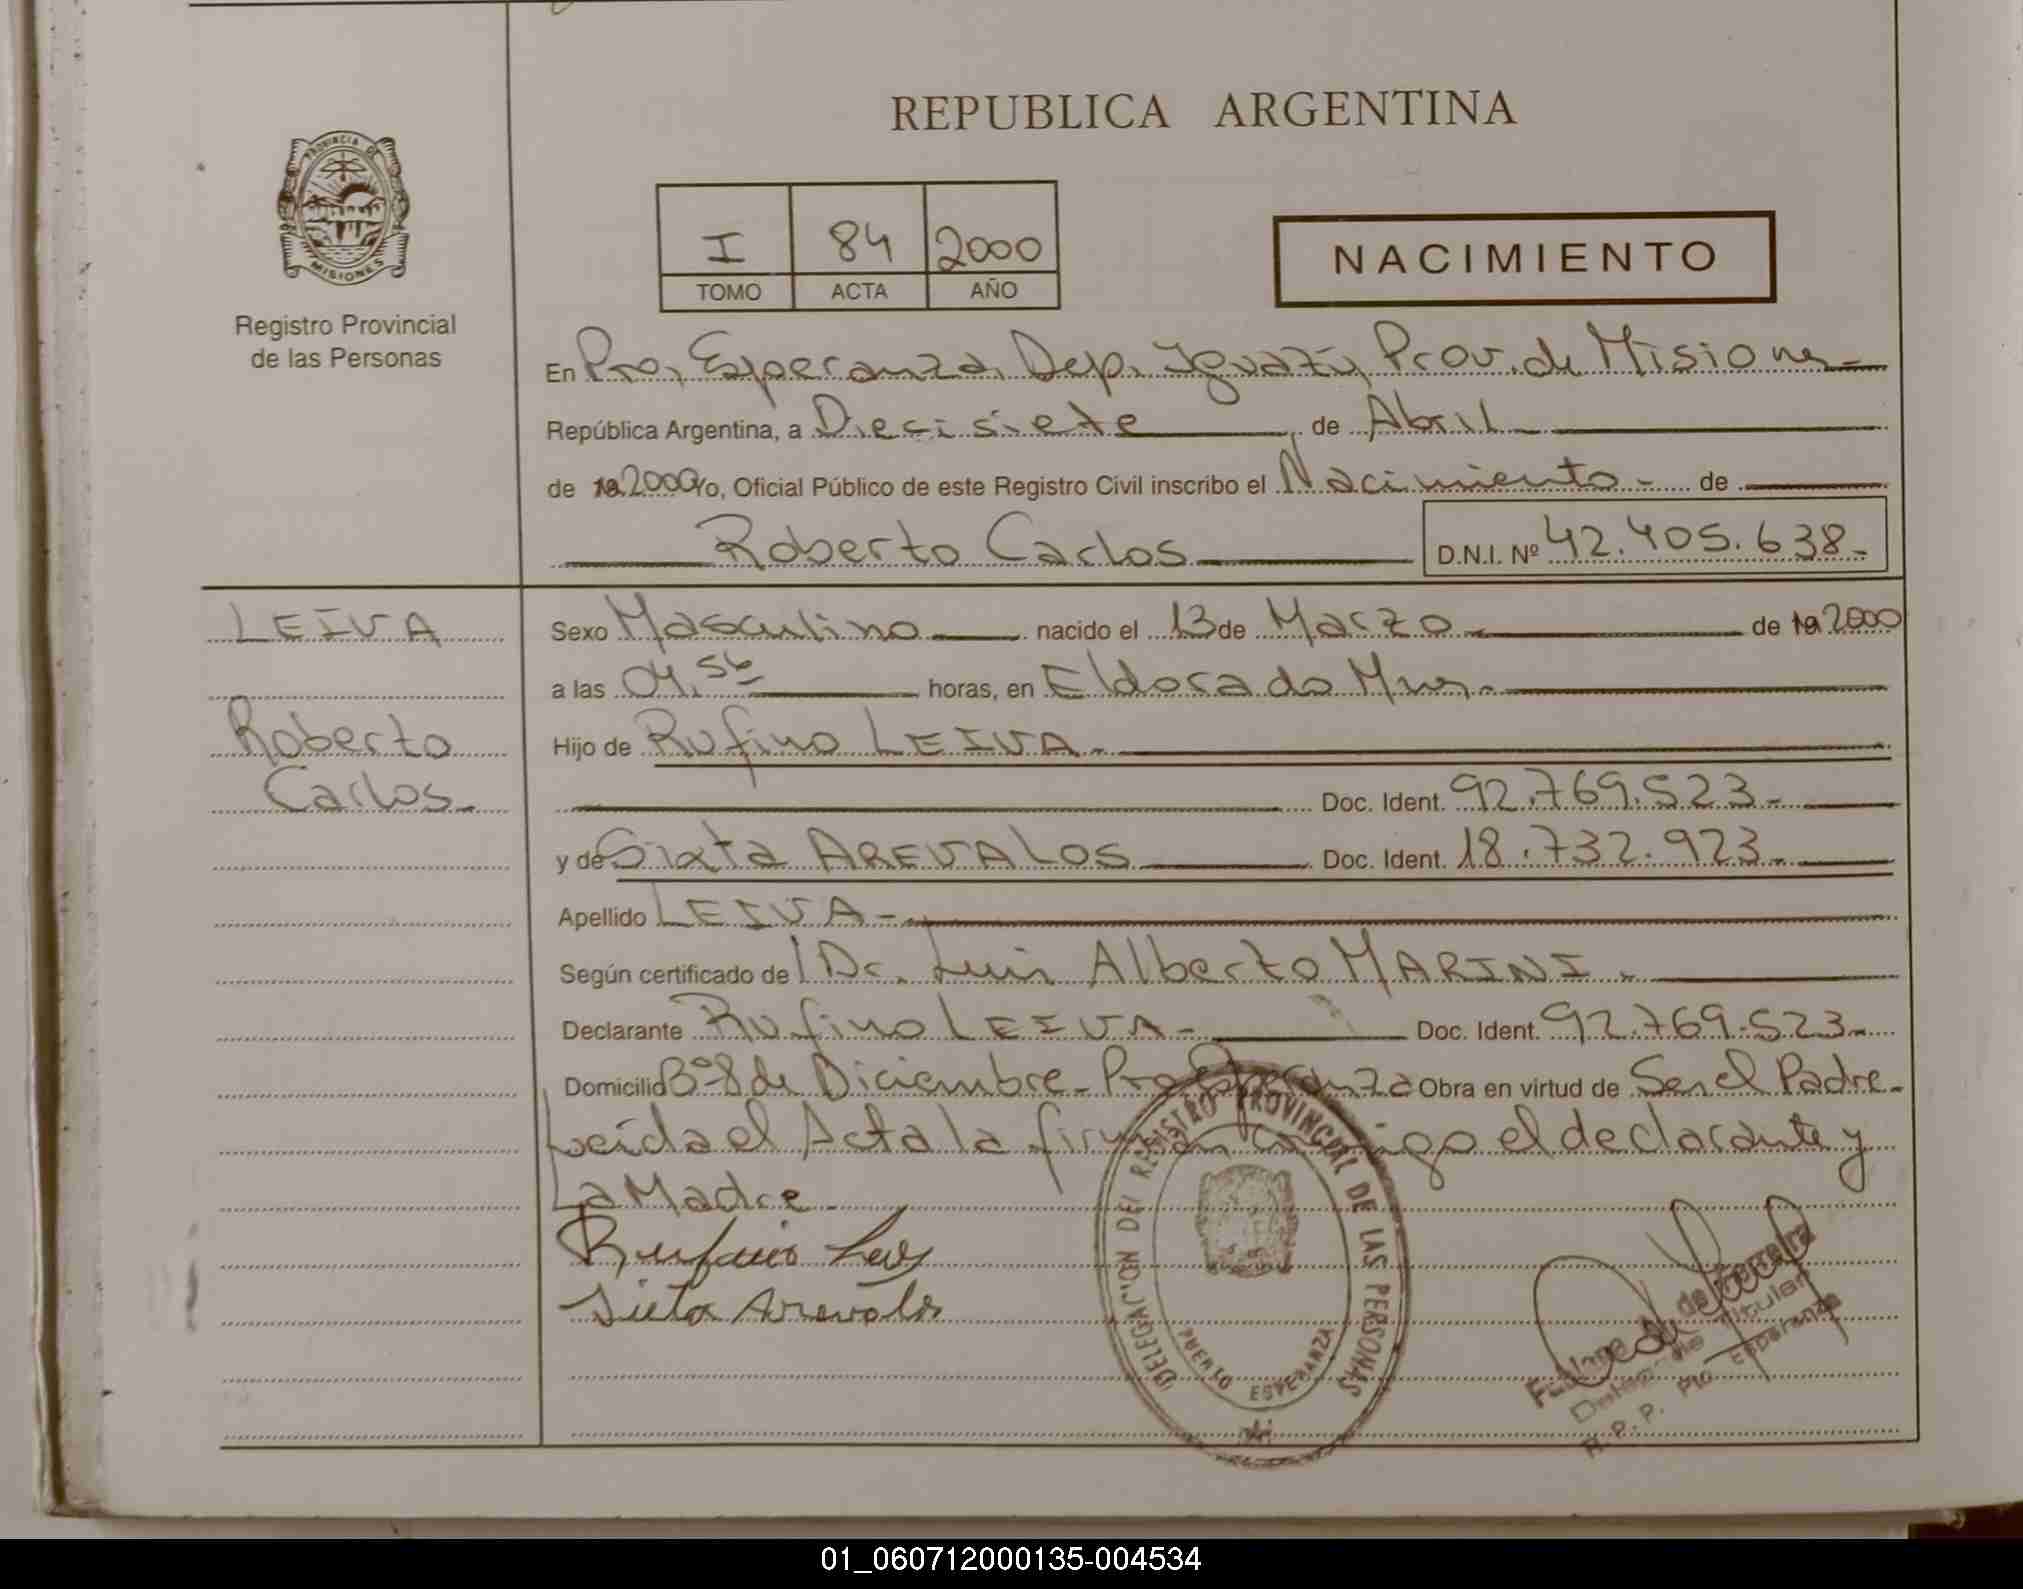 REPUBLICA ARGENTINA
PROVINCIA DE MISIONES
Registro Provincial
de las Personas
I 84 2000
TOMO ACTA AÑO
NACIMIENTO
En Pto, Esperanza, Dep. Iguazú, Prov. de Misiones
República Argentina, a Diecisiete de Abril
de 19 2000 Yo, Oficial Público de este Registro Civil inscribo el Nacimiento de
Roberto Carlos D.N.I. Nº 42.405.638
LEIVA
Roberto
Carlos
Sexo Masculino nacido el 13 de Marzo de 19 2000
a las horas, en Eldorado Mnes.
Hijo de Rufino LEIVA
Doc. Ident. 92.769.523
y de Sixta AREVALOS Doc. Ident. 18.732.923
Apellido LEIVA
Según certificado de Dr. Luis Alberto MARINI
Declarante Rufino LEIVA Doc. Ident. 92.769.523
Domicilio Bº 8 de Diciembre - Pto Esperanza Obra en virtud de Ser el Padre
Leída el Acta la firman conmigo el declarante y
La Madre
Sixta Arevalos
DELEGACION DEL REGISTRO PROVINCIAL DE LAS PERSONAS
PUERTO ESPERANZA
de Ferreira
Titular
R.P.P. Pto Esperanza
01_060712000135-004534